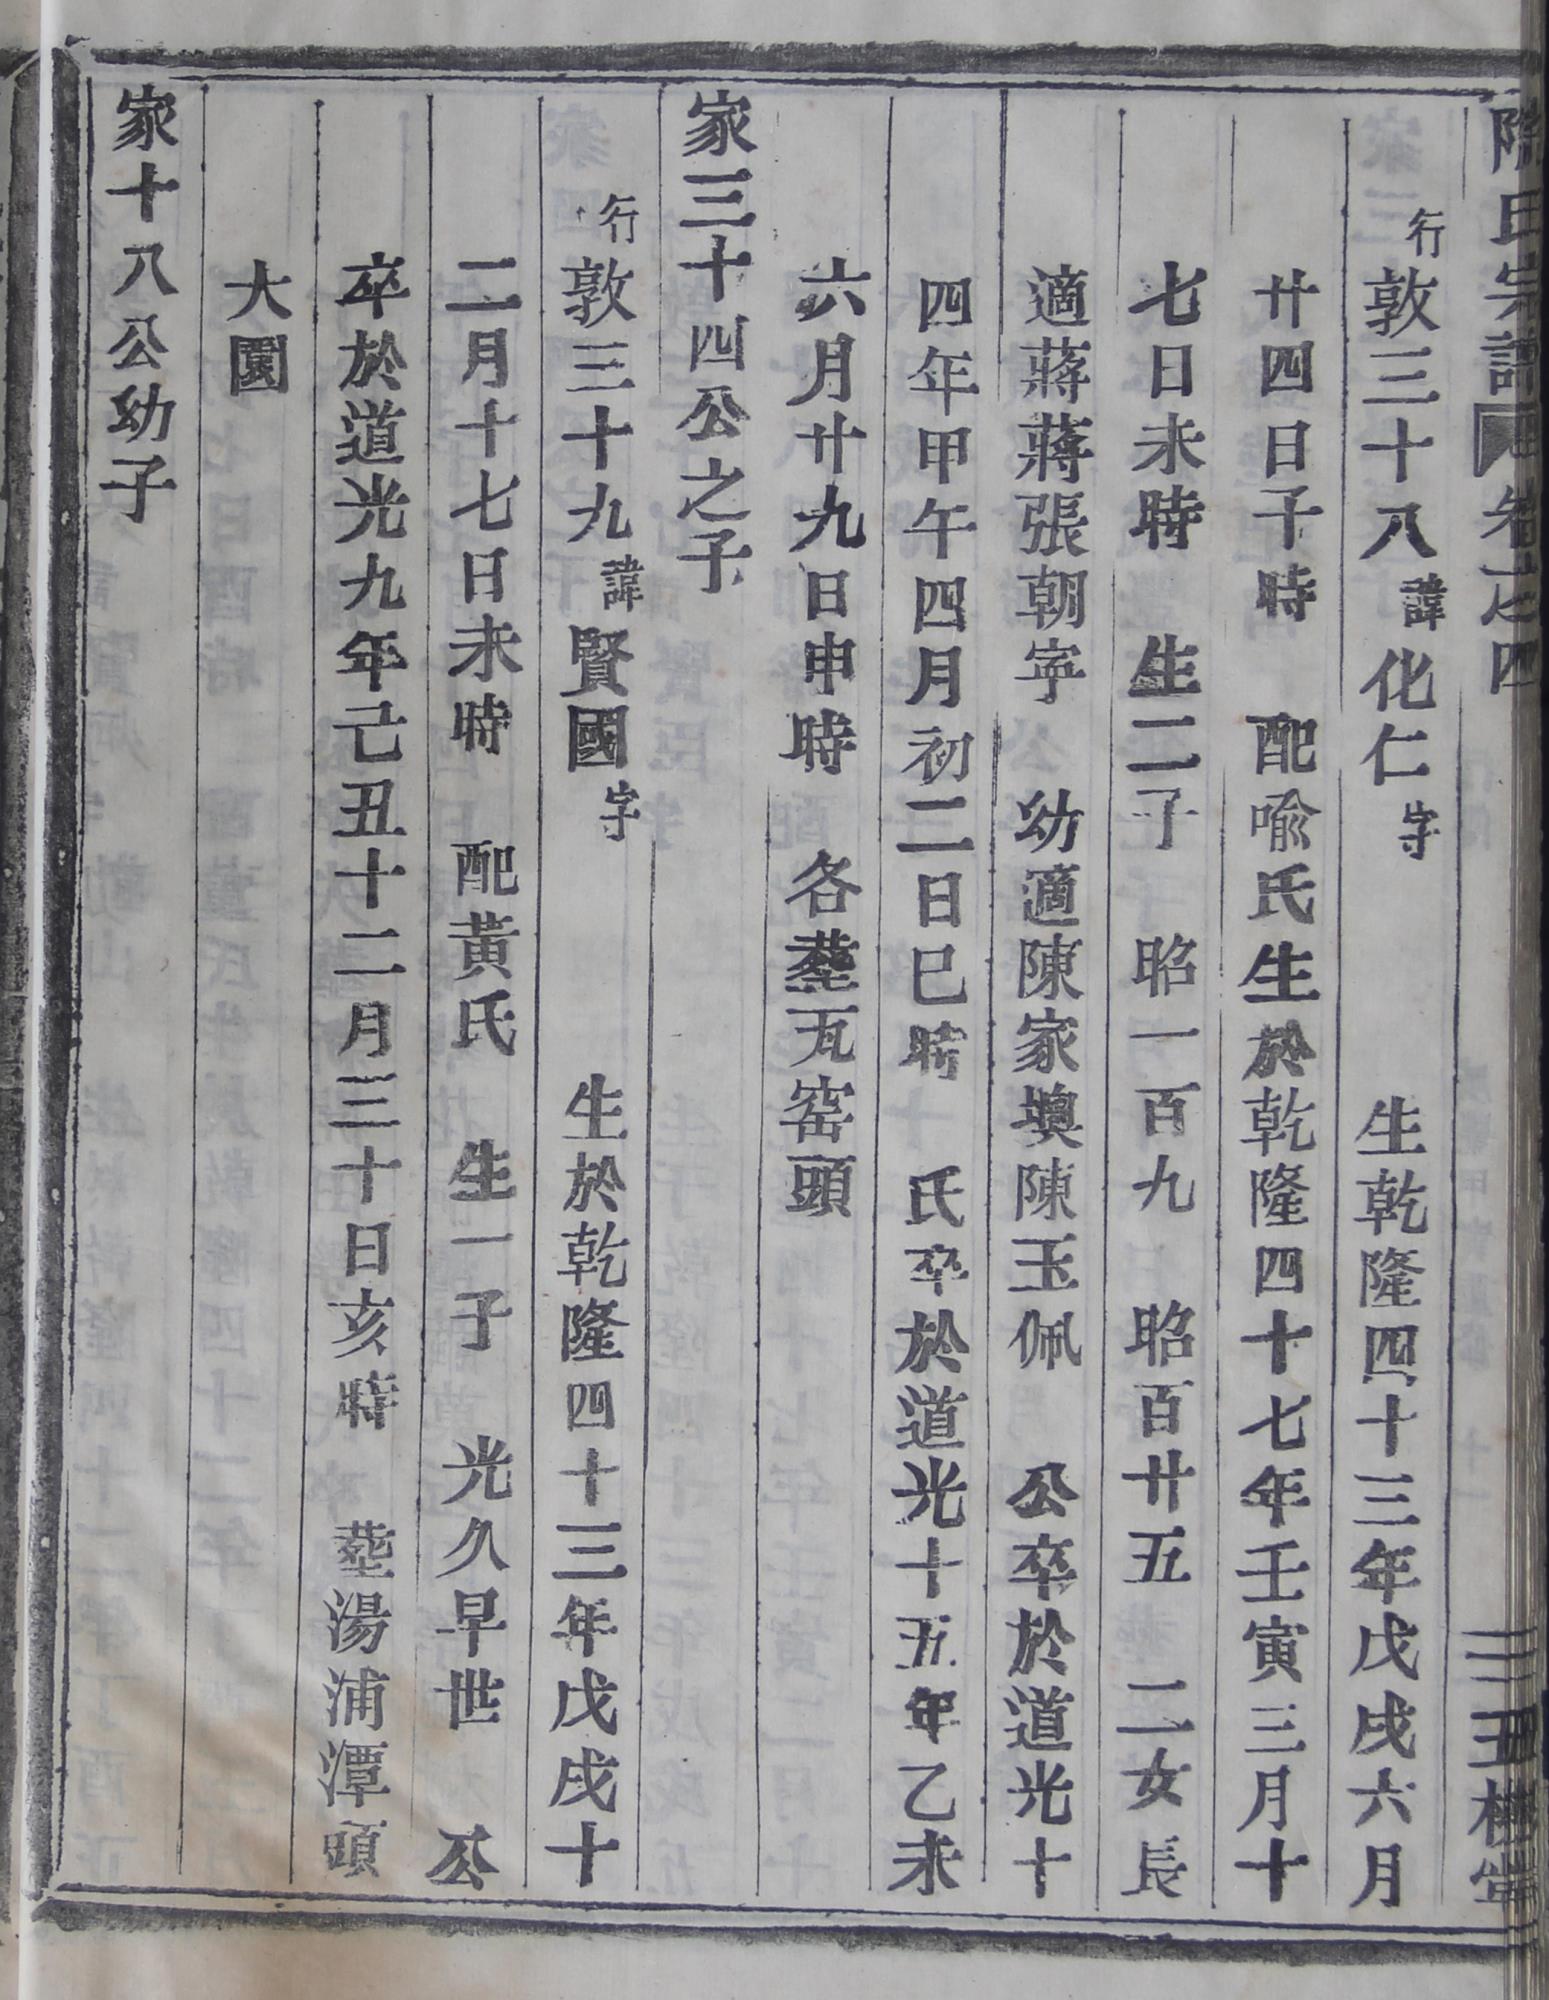 陳氏宗譜 卷之四 三五槐堂
行敦三十八諱化仁字 生乾隆四十三年戊戌六月
廿四日子時 配喩氏生於乾隆四十七年壬寅三月十
七日未時 生二子 昭一百九 昭百廿五 二女長
適蔣蔣張朝寧 幼適陳家墺陳玉佩 公卒於道光十
四年甲午四月初二日巳時 氏卒於道光十五年乙未
六月廿九日申時 各塟瓦窑頭
家三十四公之子
行敦三十九諱賢國字 生於乾隆四十三年戊戌十
二月十七日未時 配黃氏 生一子 光久早世 公
卒於道光九年己丑十二月三十日亥時 塟湯浦潭頭
大園
家十八公幼子